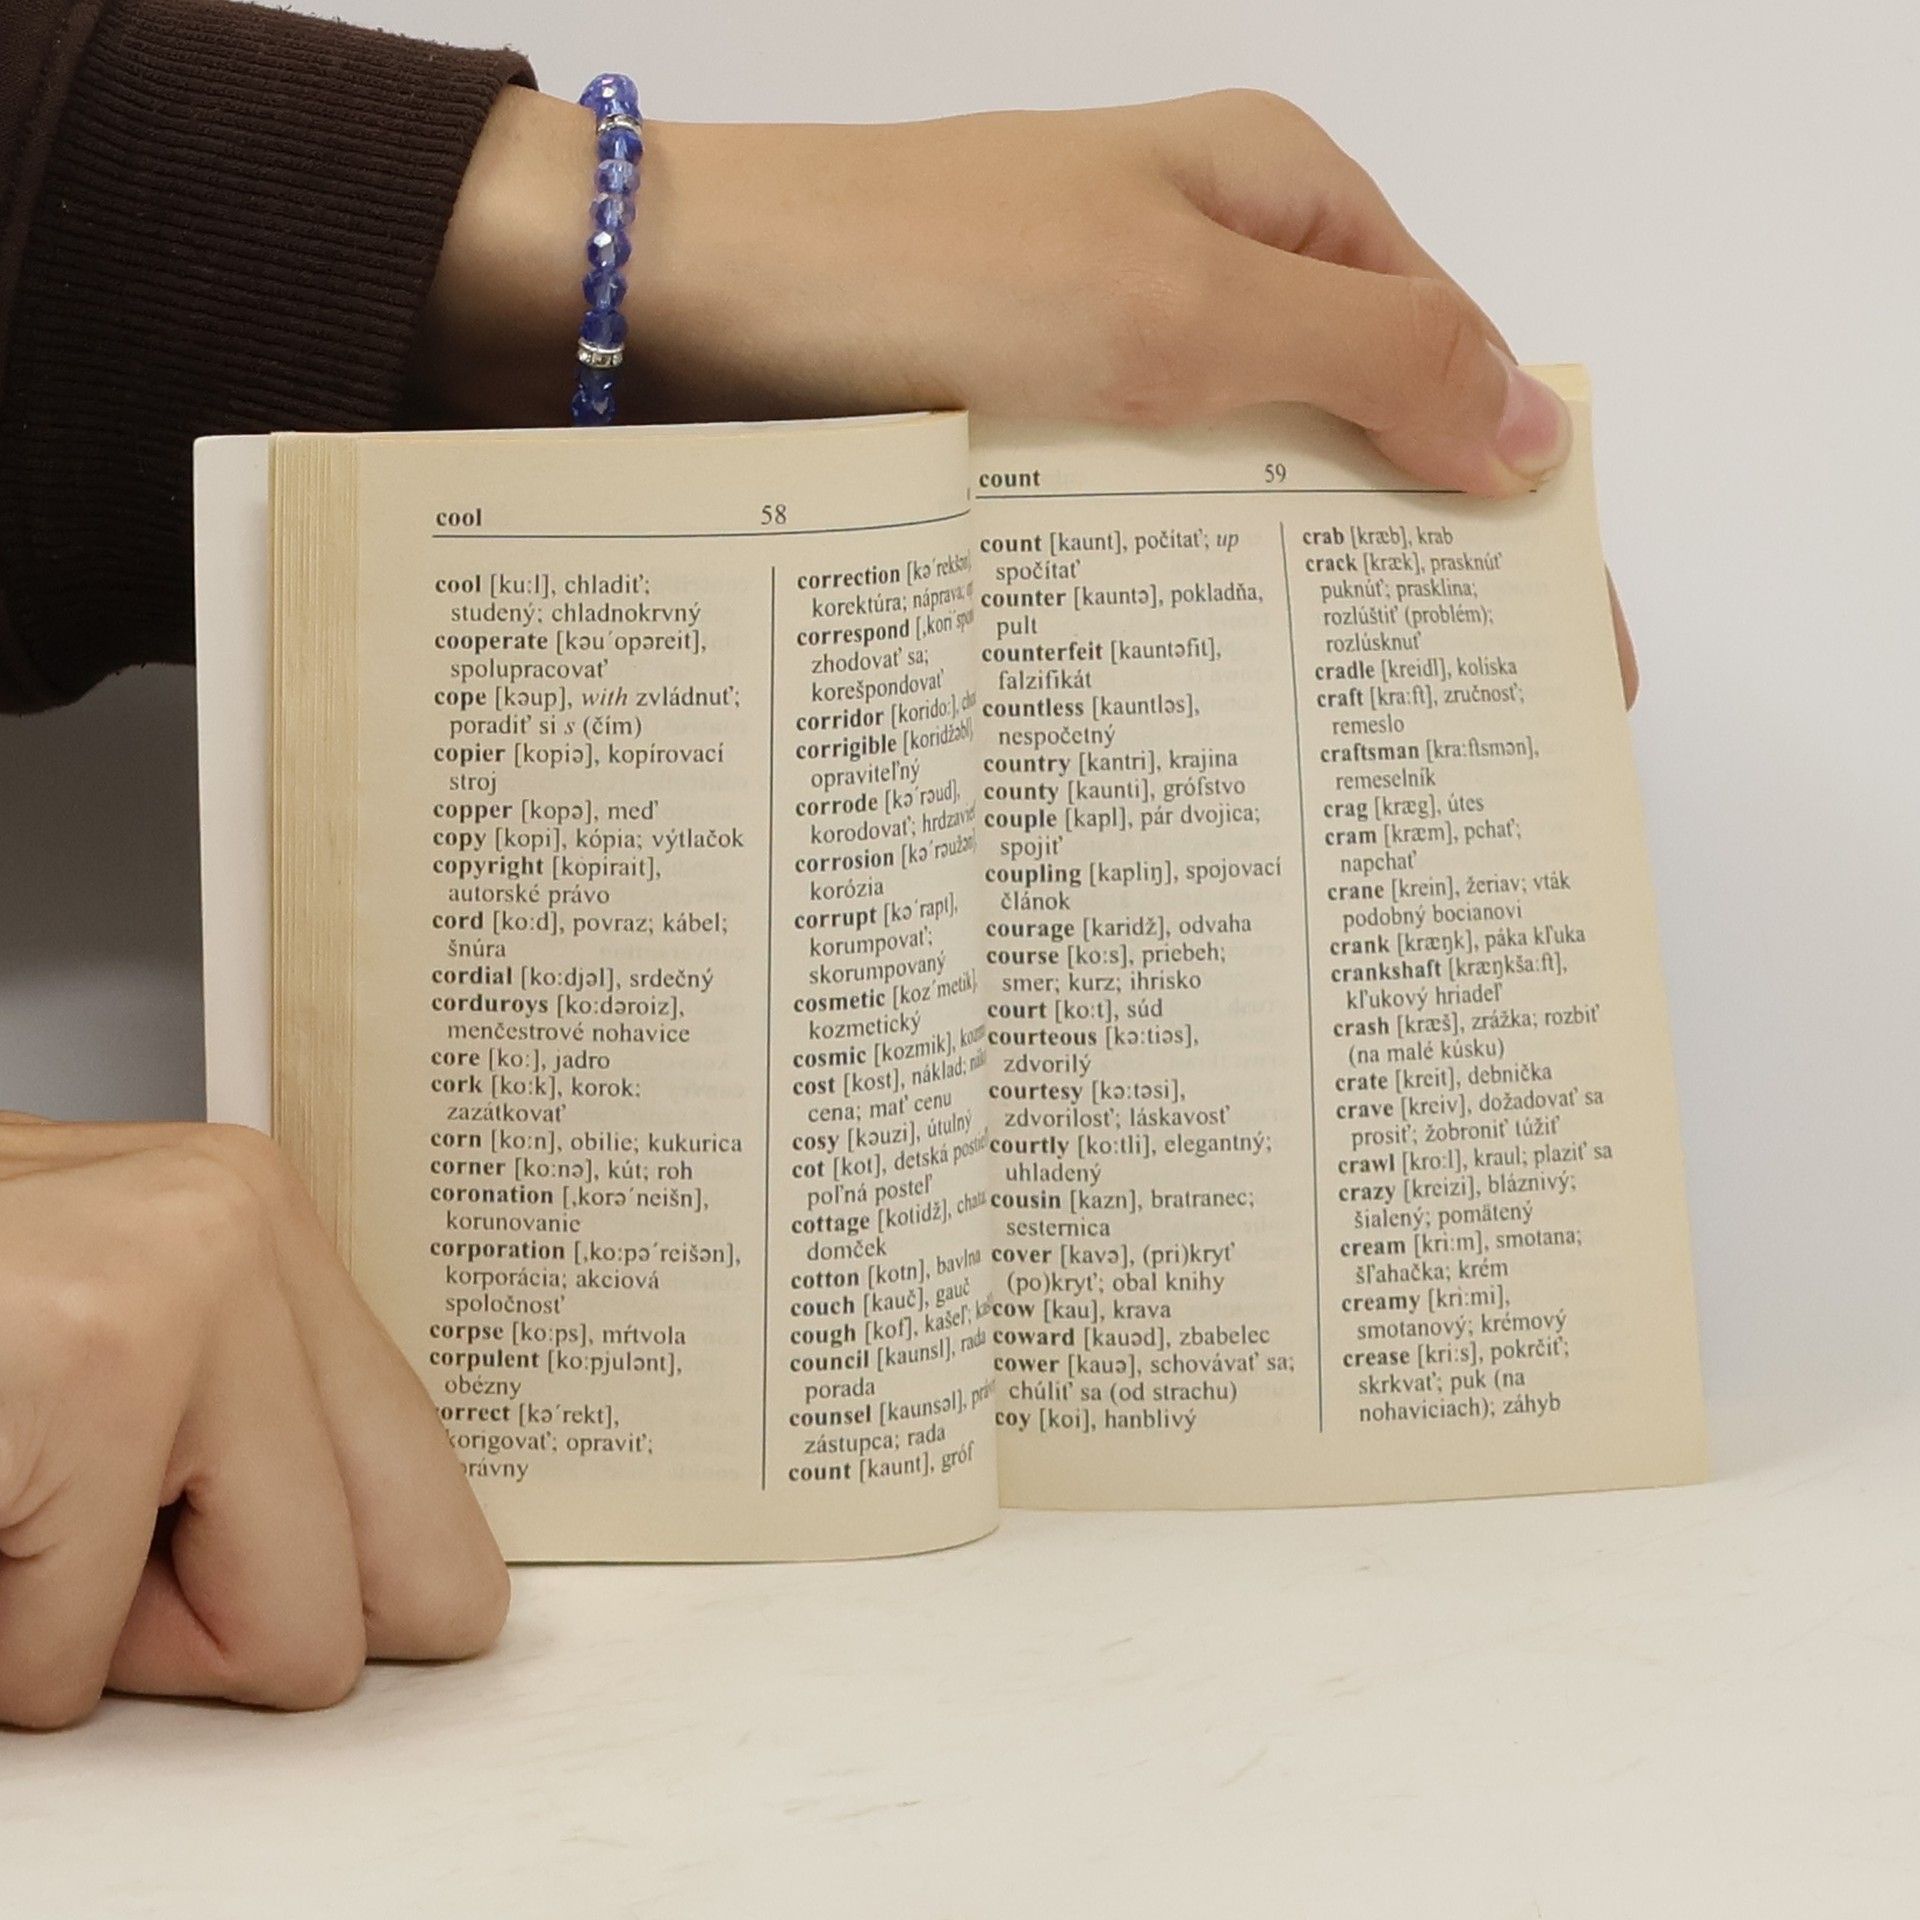 cool 58
cool [ku:l], chladiť;
studený; chladnokrvný
cooperate [kəu´opəreit],
spolupracovať
cope [kəup], with zvládnuť;
poradiť si s (čím)
copier [kopiə], kopírovací
stroj
copper [kopə], meď
copy [kopi], kópia; výtlačok
copyright [kopirait],
autorské právo
cord [ko:d], povraz; kábel;
šnúra
cordial [ko:djəl], srdečný
corduroys [ko:dəroiz],
menčestrové nohavice
core [ko:], jadro
cork [ko:k], korok;
zazátkovať
corn [ko:n], obilie; kukurica
corner [ko:nə], kút; roh
coronation [,korə´neišn],
korunovanie
corporation [,ko:pə´reišən],
korporácia; akciová
spoločnosť
corpse [ko:ps], mŕtvola
corpulent [ko:pjulənt],
obézny
orrect [kə´rekt],
korigovať; opraviť;
rávny
correction [kə´rekšən]
korektúra; náprava;
correspond [,kori´spo
zhodovať sa;
korešpondovať
corridor [korido:],
corrigible [koridžəbl]
opraviteľný
corrode [kə´rəud],
korodovať; hrdzavie
corrosion [kə´rəužən]
korózia
corrupt [kə´rapt],
korumpovať;
skorumpovaný
cosmetic [koz´metik],
kozmetický
cosmic [kozmik],
cost [kost], náklad;
cena; mať cenu
cosy [kəuzi], útulný
cot [kot], detská postieľ
poľná posteľ
cottage [kotidž],
domček
cotton [kotn], bavlna
couch [kauč], gauč
cough [kof], kašeľ;
council [kaunsl], rada
porada
counsel [kaunsəl],
zástupca; rada
count [kaunt], gróf
count 59
count [kaunt], počítať; up
spočítať
counter [kauntə], pokladňa,
pult
counterfeit [kauntəfit],
falzifikát
countless [kauntləs],
nespočetný
country [kantri], krajina
county [kaunti], grófstvo
couple [kapl], pár dvojica;
spojiť
coupling [kapliŋ], spojovací
článok
courage [karidž], odvaha
course [ko:s], priebeh;
smer; kurz; ihrisko
court [ko:t], súd
courteous [kə:tiəs],
zdvorilý
courtesy [kə:təsi],
zdvorilosť; láskavosť
courtly [ko:tli], elegantný;
uhladený
cousin [kazn], bratranec;
sesternica
cover [kavə], (pri)kryť
(po)kryť; obal knihy
cow [kau], krava
coward [kauəd], zbabelec
cower [kauə], schovávať sa;
chúliť sa (od strachu)
coy [koi], hanblivý
crab [kræb], krab
crack [kræk], prasknúť
puknúť; prasklina;
rozlúštiť (problém);
rozlúsknuť
cradle [kreidl], kolíska
craft [kra:ft], zručnosť;
remeslo
craftsman [kra:ftsmən],
remeselník
crag [kræg], útes
cram [kræm], pchať;
napchať
crane [krein], žeriav; vták
podobný bocianovi
crank [kræŋk], páka kľuka
crankshaft [kræŋkša:ft],
kľukový hriadeľ
crash [kræš], zrážka; rozbiť
(na malé kúsku)
crate [kreit], debnička
crave [kreiv], dožadovať sa
prosiť; žobroniť túžiť
crawl [kro:l], kraul; plaziť sa
crazy [kreizi], bláznivý;
šialený; pomätený
cream [kri:m], smotana;
šľahačka; krém
creamy [kri:mi],
smotanový; krémový
crease [kri:s], pokrčiť;
skrkvať; puk (na
nohaviciach); záhyb